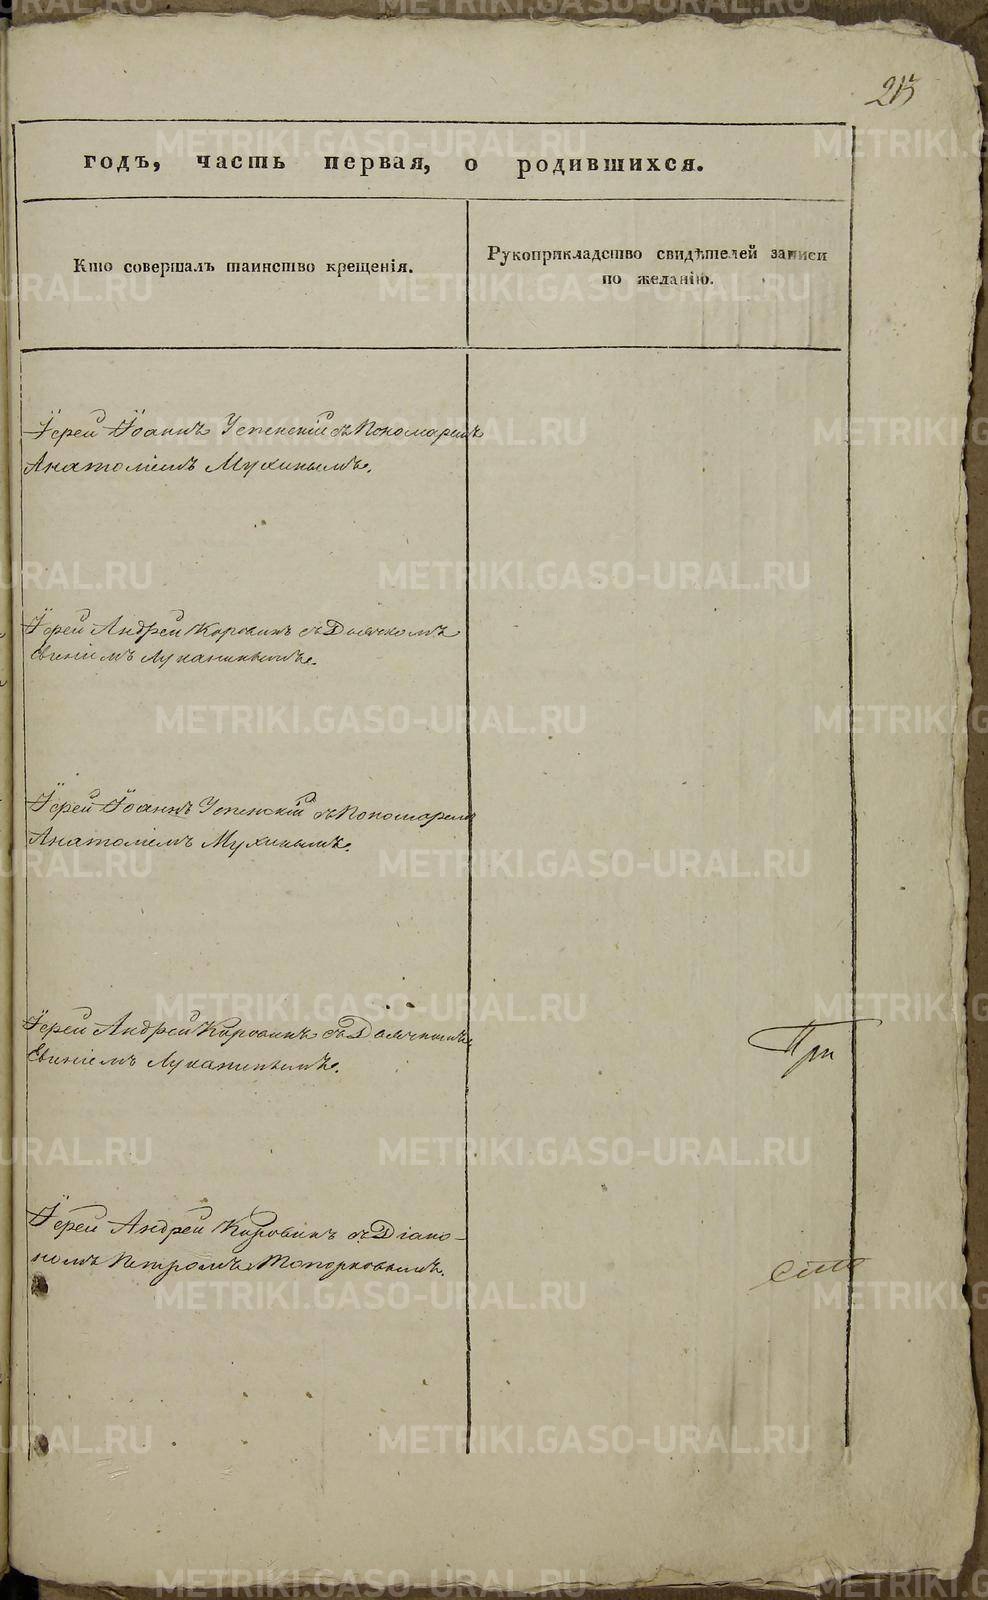 215
годъ, часть первая, о родившихся.
Кто совершалъ таинство крещенія.
Рукоприкладство свидѣтелей записи
по желанію.
Іерей Іоаннъ Успенскій съ Пономаремъ
Анатоліемъ Мухинымъ.
Іерей Андрей Коровинъ съ Дьячкомъ
Евгеніемъ Луканинымъ.
Іерей Іоаннъ Успенскій съ Пономаремъ
Анатоліемъ Мухинымъ.
Іерей Андрей Коровинъ съ Дьячкомъ
Евгеніемъ Луканинымъ.
При
Іерей Андрей Коровинъ съ Діако-
номъ Петромъ Топорковымъ.
METRIKI.GASO-URAL.RU